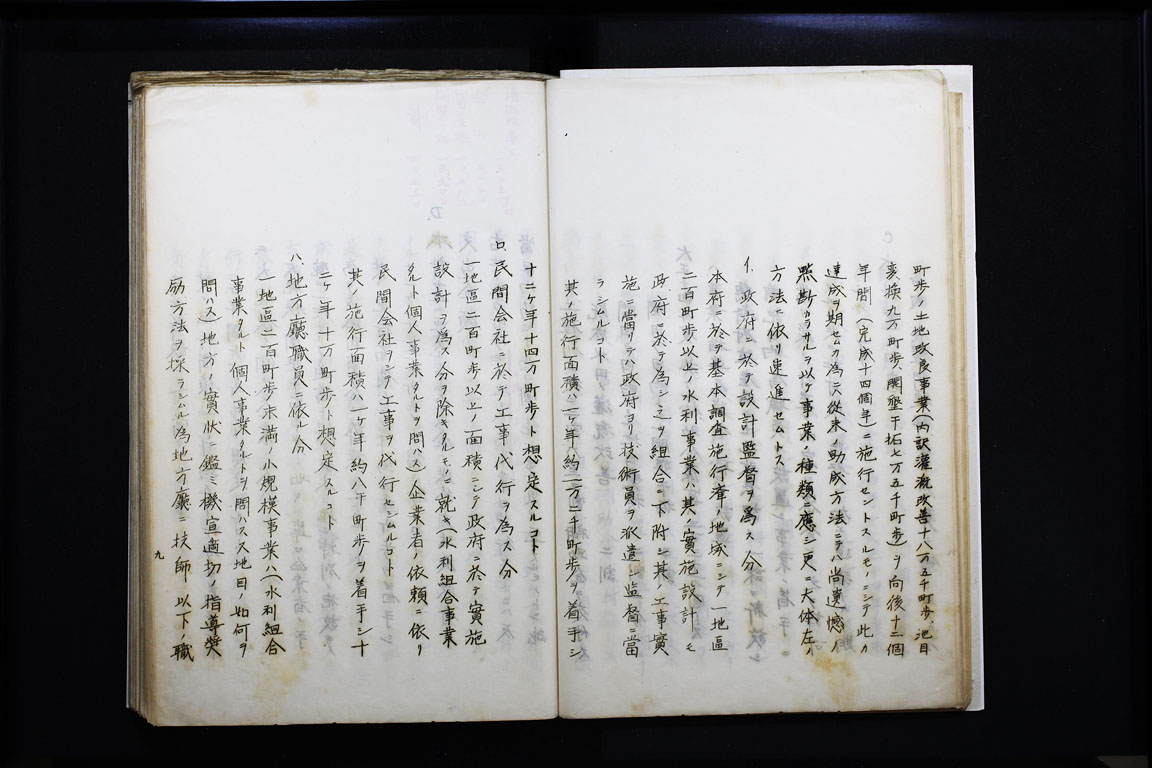 町歩ノ土地改良事業(内訳灌漑改善十八万五千町歩、地目
変換九万町歩、開墾干拓七万五千町歩)ヲ向後十二個
年間(完成十四個年)ニ施行セントスルモノニシテ此カ
達成ヲ期セムカ為ニハ従来ノ助成方法ニテハ尚遺憾ノ
点尠カラサルヲ以テ事業ノ種類ニ應シ更ニ大体左ノ
方法ニ依リ速進セムトス
イ、政府ニ於テ設計監督ヲ為ス分
本府ニ於テ基本調査施行濟ノ地域ニシテ一地區
二百町歩以上ノ水利事業ハ其ノ實施設計モ
政府ニ於テ為シ之ヲ組合ニ下附シ其ノ工事實
施ニ當リテハ政府ヨリ技術員ヲ派遣シ監督ニ當
ラシムルコト
其ノ施行面積ハ一ヶ年約一万二千町歩ヲ着手シ
十二ヶ年十四万町歩ト想定スルコト
ロ、民間会社ニ於テ工事代行ヲ為ス分
一地區二百町歩以上ノ面積ニシテ政府ニ於テ實施
設計ヲ為ス分ヲ除キタルモノニ就キ(水利組合事業
タルト個人事業タルトヲ問ハス)企業者ノ依頼ニ依リ
民間会社ヲシテ工事ヲ代行セシムルコト
其ノ施行面積ハ一ヶ年約八千町歩ヲ着手シ十
二ヶ年十万町歩ト想定スルコト
ハ、地方廳職員ニ依ル分
一地區二百町歩未満ノ小規模事業ハ(水利組合
事業タルト個人事業タルトヲ問ハス又地目ノ如何ヲ
問ハス)地方ノ實状ニ鑑ミ機宜適切ノ指導奬
励方法ヲ採ラシムル為地方廳ニ技師以下ノ職
九